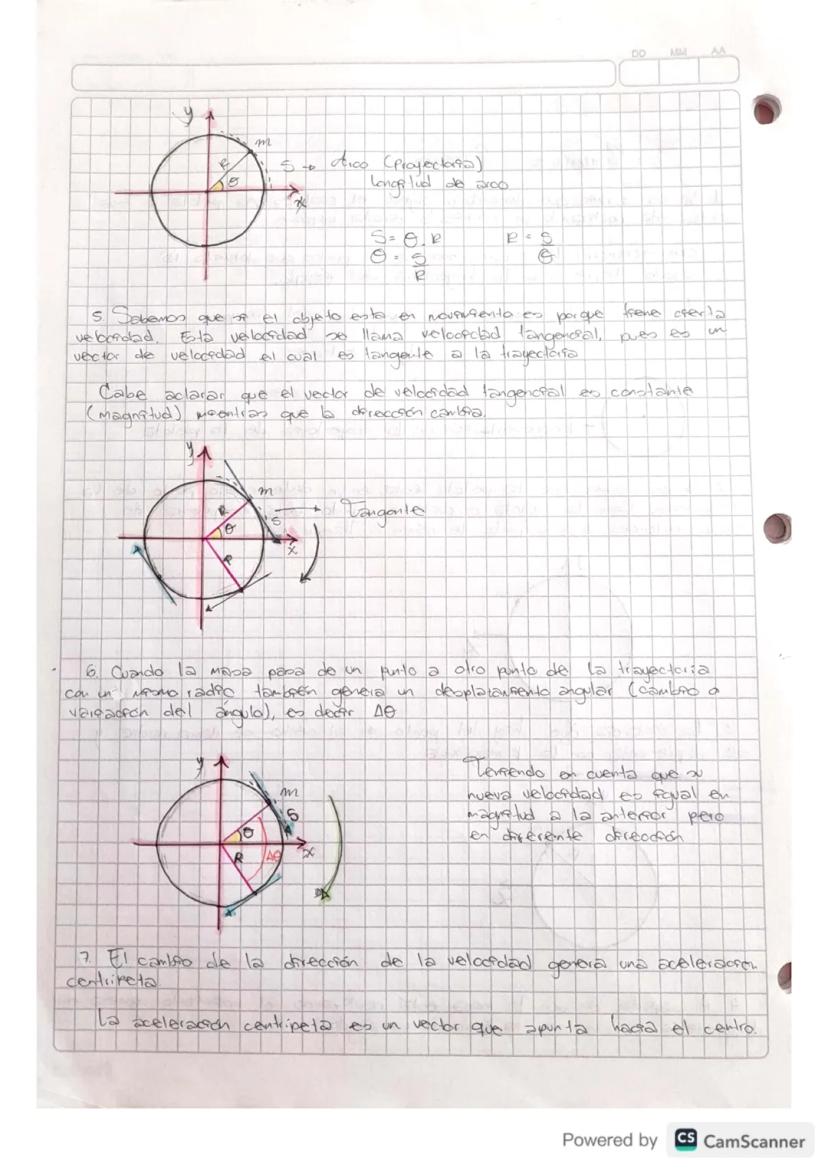 DD MM AA
y
m
R
θ
x
S → Arco (Proyectoria)
longitud de arco
S = θ . R
R = S / θ
θ = S / R
5. Sabemos que si el objeto esta en movimiento es porque tiene cierta
velocidad. Esta velocidad se llama velocidad tangencial, pues es un
vector de velocidad el cual es tangente a la trayectoria
Cabe aclarar que el vector de velocidad tangencial es constante
(magnitud) mientras que la dirección cambia.
y
m
R
θ
S → Tangente
x
R
6. Cuando la masa pasa de un punto a otro punto de la trayectoria
con un mismo radio también genera un desplazamiento angular (cambio o
variación del ángulo), es decir Δθ
y
m
S
θ
x
R
Δθ
Teniendo en cuenta que su
nueva velocidad es igual en
magnitud a la anterior pero
en diferente dirección
7. El cambio de la dirección de la velocidad genera una aceleración
centripeta
La aceleración centripeta es un vector que apunta hacia el centro.
Powered by CS CamScanner